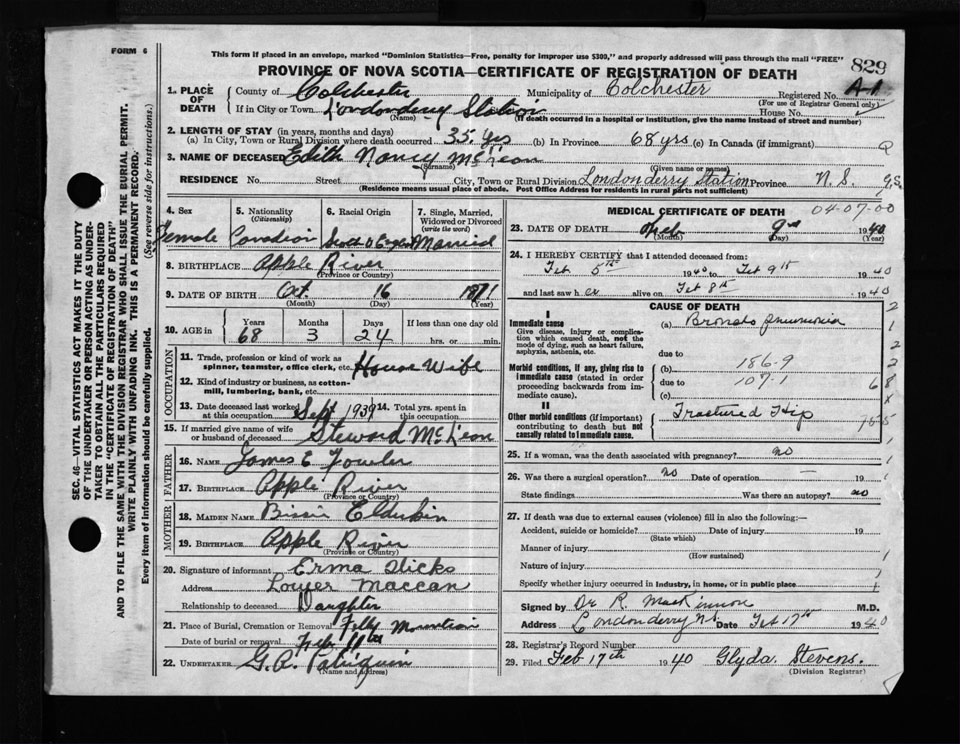 FORM 6
This form if placed in an envelope, marked "Dominion Statistics—Free, penalty for improper use $300," and properly addressed will pass through the mail "FREE"
829
PROVINCE OF NOVA SCOTIA—CERTIFICATE OF REGISTRATION OF DEATH
1. PLACE OF DEATH
County of Colchester
Municipality of Colchester
Registered No. A-1
(For use of Registrar General only)
If in City or Town Londonderry Station
(Name)
House No.
(If death occurred in a hospital or institution, give the name instead of street and number)
2. LENGTH OF STAY (in years, months and days)
(a) In City, Town or Rural Division where death occurred 35 Yrs (b) In Province 68 yrs (c) In Canada (if immigrant)
3. NAME OF DECEASED Edith Nancy McLeon
(Surname) (Given name or names)
RESIDENCE No. Street City, Town or Rural Division Londonderry Station Province N.S.
(Residence means usual place of abode. Post Office Address for residents in rural parts not sufficient)
4. Sex
Female
5. Nationality
(Citizenship)
Canadian
6. Racial Origin
Scotch & English
7. Single, Married, Widowed or Divorced
(write the word)
Married
8. BIRTHPLACE Apple River
(Province or Country)
9. DATE OF BIRTH Oct. 16 1871
(Month) (Day) (Year)
10. AGE in
Years Months Days If less than one day old
68 3 24 hrs. or min.
OCCUPATION
11. Trade, profession or kind of work as spinner, teamster, office clerk, etc. House Wife
12. Kind of industry or business, as cotton-mill, lumbering, bank, etc.
13. Date deceased last worked at this occupation Sept 1939 14. Total yrs. spent in this occupation
15. If married give name of wife or husband of deceased Steward McLeon
FATHER
16. NAME James E Fowler
17. BIRTHPLACE Apple River
(Province or Country)
MOTHER
18. MAIDEN NAME Bissie Elderkin
19. BIRTHPLACE Apple River
(Province or Country)
20. Signature of informant Erma Hicks
Address Lower Maccan
Relationship to deceased Daughter
21. Place of Burial, Cremation or Removal Folly Mountain
Date of burial or removal Feb 11th
22. UNDERTAKER G.A.
(Name and address)
MEDICAL CERTIFICATE OF DEATH 04-07-00
23. DATE OF DEATH Feb 9th 1940
(Month) (Day) (Year)
24. I HEREBY CERTIFY that I attended deceased from
Feb 5th 1940 to Feb 9th 1940
and last saw her alive on Feb 8th 1940
CAUSE OF DEATH
I
Immediate cause
Give disease, injury or complication which caused death, not the mode of dying, such as heart failure, asphyxia, asthenia, etc.
(a) Broncho pneumonia
due to
Morbid conditions, if any, giving rise to immediate cause (stated in order proceeding backwards from immediate cause).
(b) 186.9
due to 107.1
(c)
II
Other morbid conditions (if important) contributing to death but not causally related to immediate cause.
Fractured Hip
25. If a woman, was the death associated with pregnancy? no
26. Was there a surgical operation? no Date of operation — 19
State findings Was there an autopsy? no
27. If death was due to external causes (violence) fill in also the following:—
Accident, suicide or homicide? Date of injury 19
(State which)
Manner of injury
(How sustained)
Nature of injury
Specify whether injury occurred in industry, in home, or in public place
Signed by Dr R. MacKinnon M.D.
Address Londonderry N.S. Date Feb 17th 1940
28. Registrar's Record Number
29. Filed Feb 17th 1940 Glyda Stevens.
(Division Registrar)
SEC. 46—VITAL STATISTICS ACT MAKES IT THE DUTY OF THE UNDERTAKER OR PERSON ACTING AS UNDERTAKER TO OBTAIN ALL THE PARTICULARS REQUIRED IN THE "CERTIFICATE OF REGISTRATION OF DEATH"
AND TO FILE THE SAME WITH THE DIVISION REGISTRAR WHO SHALL ISSUE THE BURIAL PERMIT.
WRITE PLAINLY WITH UNFADING INK. THIS IS A PERMANENT RECORD.
Every item of information should be carefully supplied. (See reverse side for instructions.)